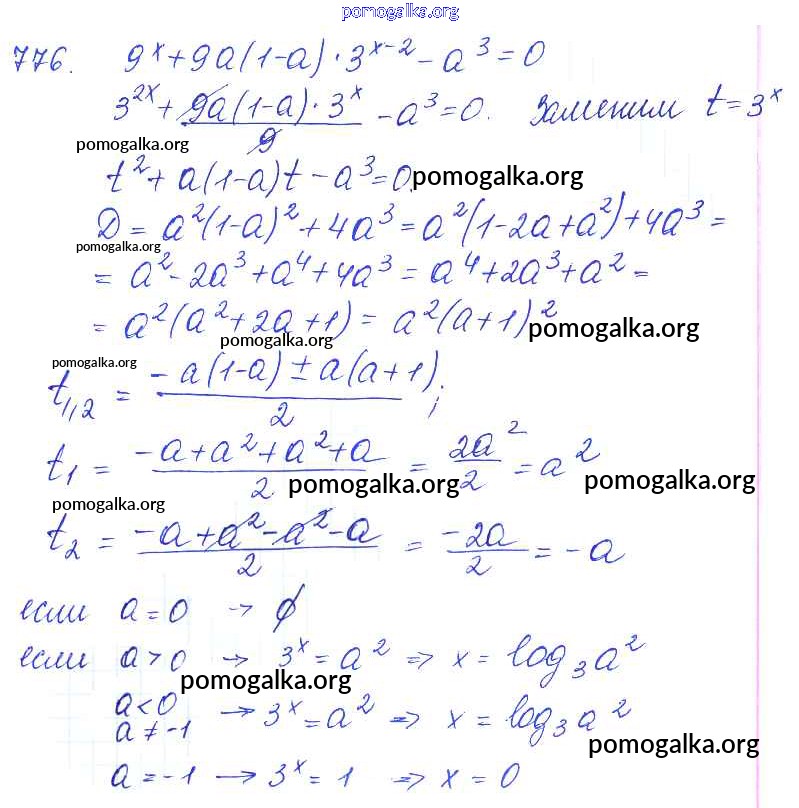 pomogalka.org
776. 9^x + 9a(1-a)·3^(x-2) - a^3 = 0
3^(2x) + 9a(1-a)·3^x / 9 - a^3 = 0. Заменим t = 3^x
pomogalka.org
t^2 + a(1-a)t - a^3 = 0. pomogalka.org
D = a^2(1-a)^2 + 4a^3 = a^2(1-2a+a^2) + 4a^3 =
pomogalka.org
= a^2 - 2a^3 + a^4 + 4a^3 = a^4 + 2a^3 + a^2 =
= a^2(a^2+2a+1) = a^2(a+1)^2
pomogalka.org pomogalka.org
pomogalka.org
t_1,2 = (-a(1-a) ± a(a+1)) / 2;
t_1 = (-a+a^2+a^2+a) / 2 = 2a^2 / 2 = a^2
pomogalka.org pomogalka.org
pomogalka.org
t_2 = (-a+a^2-a^2-a) / 2 = -2a / 2 = -a
если a = 0 → ∅
если a > 0 → 3^x = a^2 ⇒ x = log_3 a^2
pomogalka.org
a < 0
a ≠ -1 → 3^x = a^2 ⇒ x = log_3 a^2
pomogalka.org
a = -1 → 3^x = 1 ⇒ x = 0